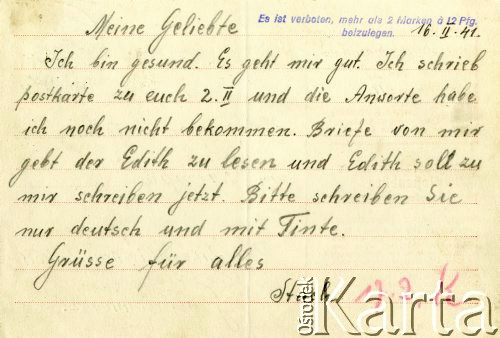 Es ist verboten, mehr als 2 Marken à 12 Pfg.
beizulegen.
Meine Geliebte 16.II.41.
Ich bin gesund. Es geht mir gut. Ich schrieb
postkarte zu euch 2.II und die Anworte habe
ich noch nicht bekommen. Briefe von mir
gebt der Edith zu lesen und Edith soll zu
mir schreiben jetzt. Bitte schreiben Sie
nur deutsch und mit Tinte.
Grüsse für alles
Stach
ośrodek Karta